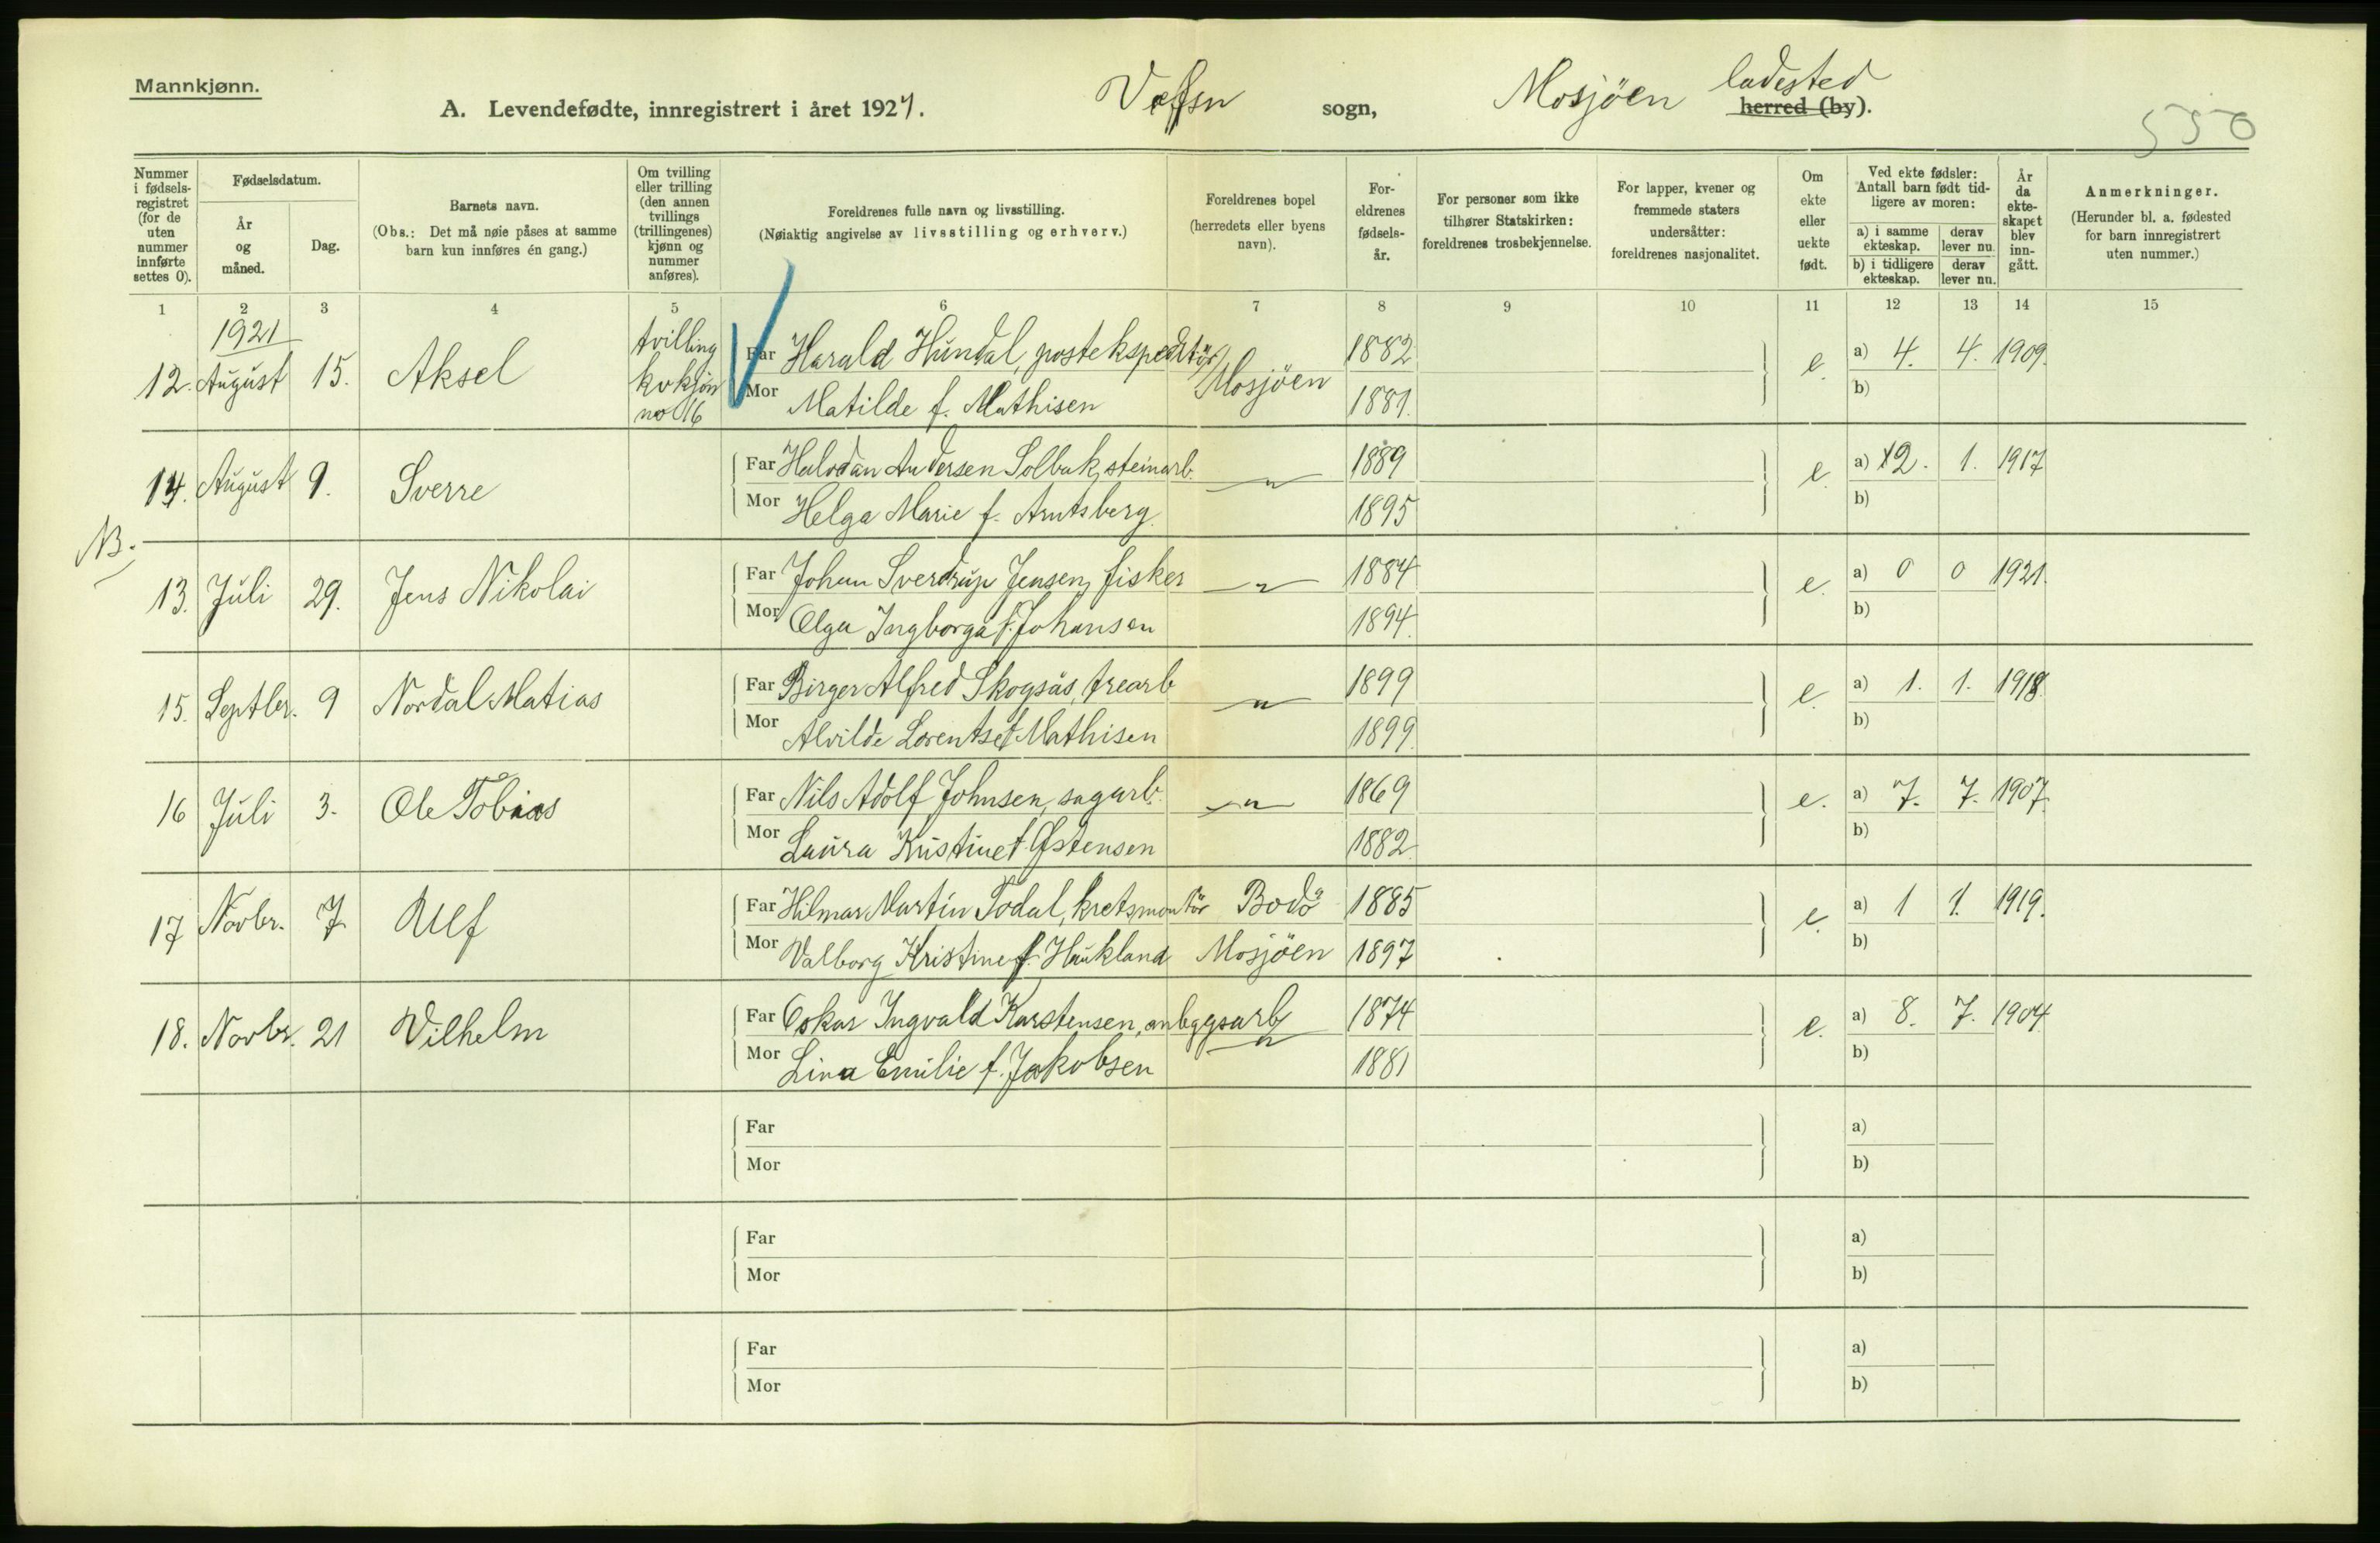 Mannkjønn.
A. Levendefødte, innregistrert i året 1921. Vefsn sogn, Mosjöen ladested herred (by).
550
Nummer i fødsels-registret (for de uten nummer innførte settes 0).
Fødselsdatum.
År og måned.
Dag.
Barnets navn.
(Obs.: Det må nøie påses at samme barn kun innføres én gang.)
Om tvilling eller trilling (den annen tvillings (trillingenes) kjønn og nummer anføres).
Foreldrenes fulle navn og livsstilling.
(Nøiaktig angivelse av livsstilling og erhverv.)
Foreldrenes bopel (herredets eller byens navn).
For-eldrenes fødsels-år.
For personer som ikke tilhører Statskirken: foreldrenes trosbekjennelse.
For lapper, kvener og fremmede staters undersåtter: foreldrenes nasjonalitet.
Om ekte eller uekte født.
Ved ekte fødsler: Antall barn født tid-ligere av moren:
a) i samme ekteskap. derav lever nu.
b) i tidligere ekteskap. derav lever nu.
År da ekte-skapet blev inn-gått.
Anmerkninger.
(Herunder bl. a. fødested for barn innregistrert uten nummer.)
1 2 3 4 5 6 7 8 9 10 11 12 13 14 15
1921
12. August 15. Aksel tvilling kvkjøn no 16 Far Harald Hundal, postekspeditör Mosjöen 1882 e. a) 4. 4. 1909.
Mor Matilde f. Mathisen 1881. b)
14. August 9. Sverre Far Halvdan Andersen Solbak, steinarb. " 1889 e. a) 2. 1. 1917
Mor Helga Marie f. Arntsberg. 1895 b)
NB.
13. Juli 29. Jens Nikolai Far Johan Sverdrup Jensen, fisker " 1884 e. a) 0 0 1921.
Mor Olga Ingborga f. Johansen 1894. b)
15. Septbr. 9 Nordal Matias Far Birger Alfred Skogsås, trearb " 1899 e. a) 1. 1. 1918.
Mor Alvilde Lorentse f Mathisen 1899. b)
16 Juli 3. Ole Tobias Far Nils Adolf Johnsen, sagarb. " 1869 e. a) 7. 7. 1907.
Mor Laura Kristine f. Østensen 1882. b)
17 Novbr. 7 Ulf Far Hilmar Martin Todal, kretsmontör Bodö 1885 e. a) 1 1. 1919.
Mor Valborg Kristine f. Haukland Mosjöen 1897 b)
18. Novbr. 21 Vilhelm Far Oskar Ingvald Karstensen, anleggsarb " 1874 e. a) 8. 7. 1904
Mor Lina Emilie f. Jakobsen 1881 b)
Far a)
Mor b)
Far a)
Mor b)
Far a)
Mor b)